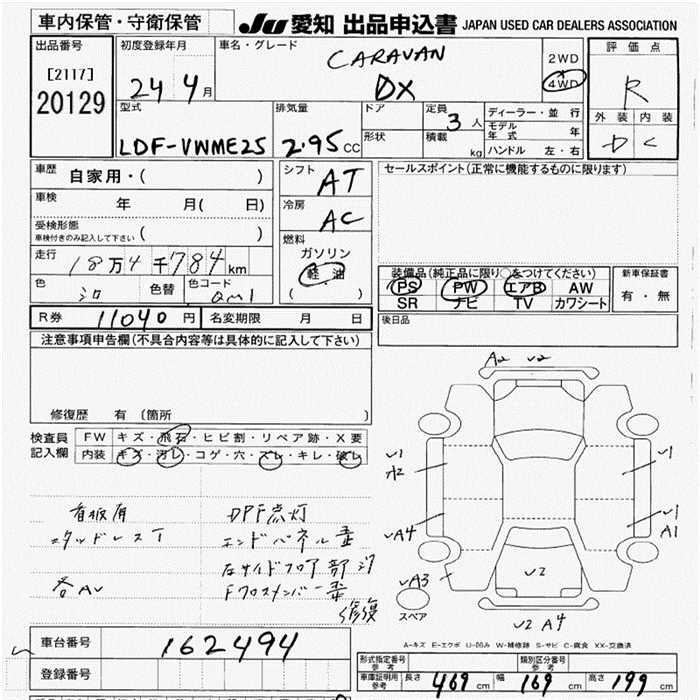 車内保管・守衛保管
JU 愛知 出品申込書 JAPAN USED CAR DEALERS ASSOCIATION
出品番号
[2117]
20129
初度登録年月
24 4月
車名・グレード
CARAVAN
DX
2WD
4WD
評価点
R
外装 内装
D C
型式
LDF-VWME25
排気量
2.95cc
ドア
形状
定員 3人
積載 kg
ディーラー・並行
モデル年式 年
ハンドル 左・右
車歴 自家用・( )
車検 年 月( 日)
受検形態
車検付きのみ記入して下さい ( )
走行 18万4千784km
色 シロ 色替 色コード QM1
シフト AT
冷房 AC
燃料
ガソリン
軽油
( )
セールスポイント(正常に機能するものに限ります)
装備品(純正品に限り○をつけてください)
PS PW エアB AW
SR ナビ TV カワシート
新車保証書
有・無
R券 11040円 名変期限 月 日
後日品
注意事項申告欄(不具合内容等は具体的に記入して下さい)
修復歴 有 (箇所 )
検査員記入欄
FW キズ・飛石・ヒビ割・リペア跡・X要
内装 キズ・汚レ・コゲ・穴・スレ・キレ・破レ
看板有
スタッドレスT
各AU
DPF点灯
エンドパネル歪
左サイドフロア部
Fクロスメンバー歪
修復
A2 U2
U1
A2
UA4
UA3
U1
U1
A1
U2
U2 A4
スペア
A-キズ E-エクボ U-凹み W-補修跡 S-サビ C-腐食 XX-交換済
車台番号 162494
登録番号
型式指定番号参考
類別区分番号参考
車庫証明用参考 長さ 469cm 幅 169cm 高さ 199cm